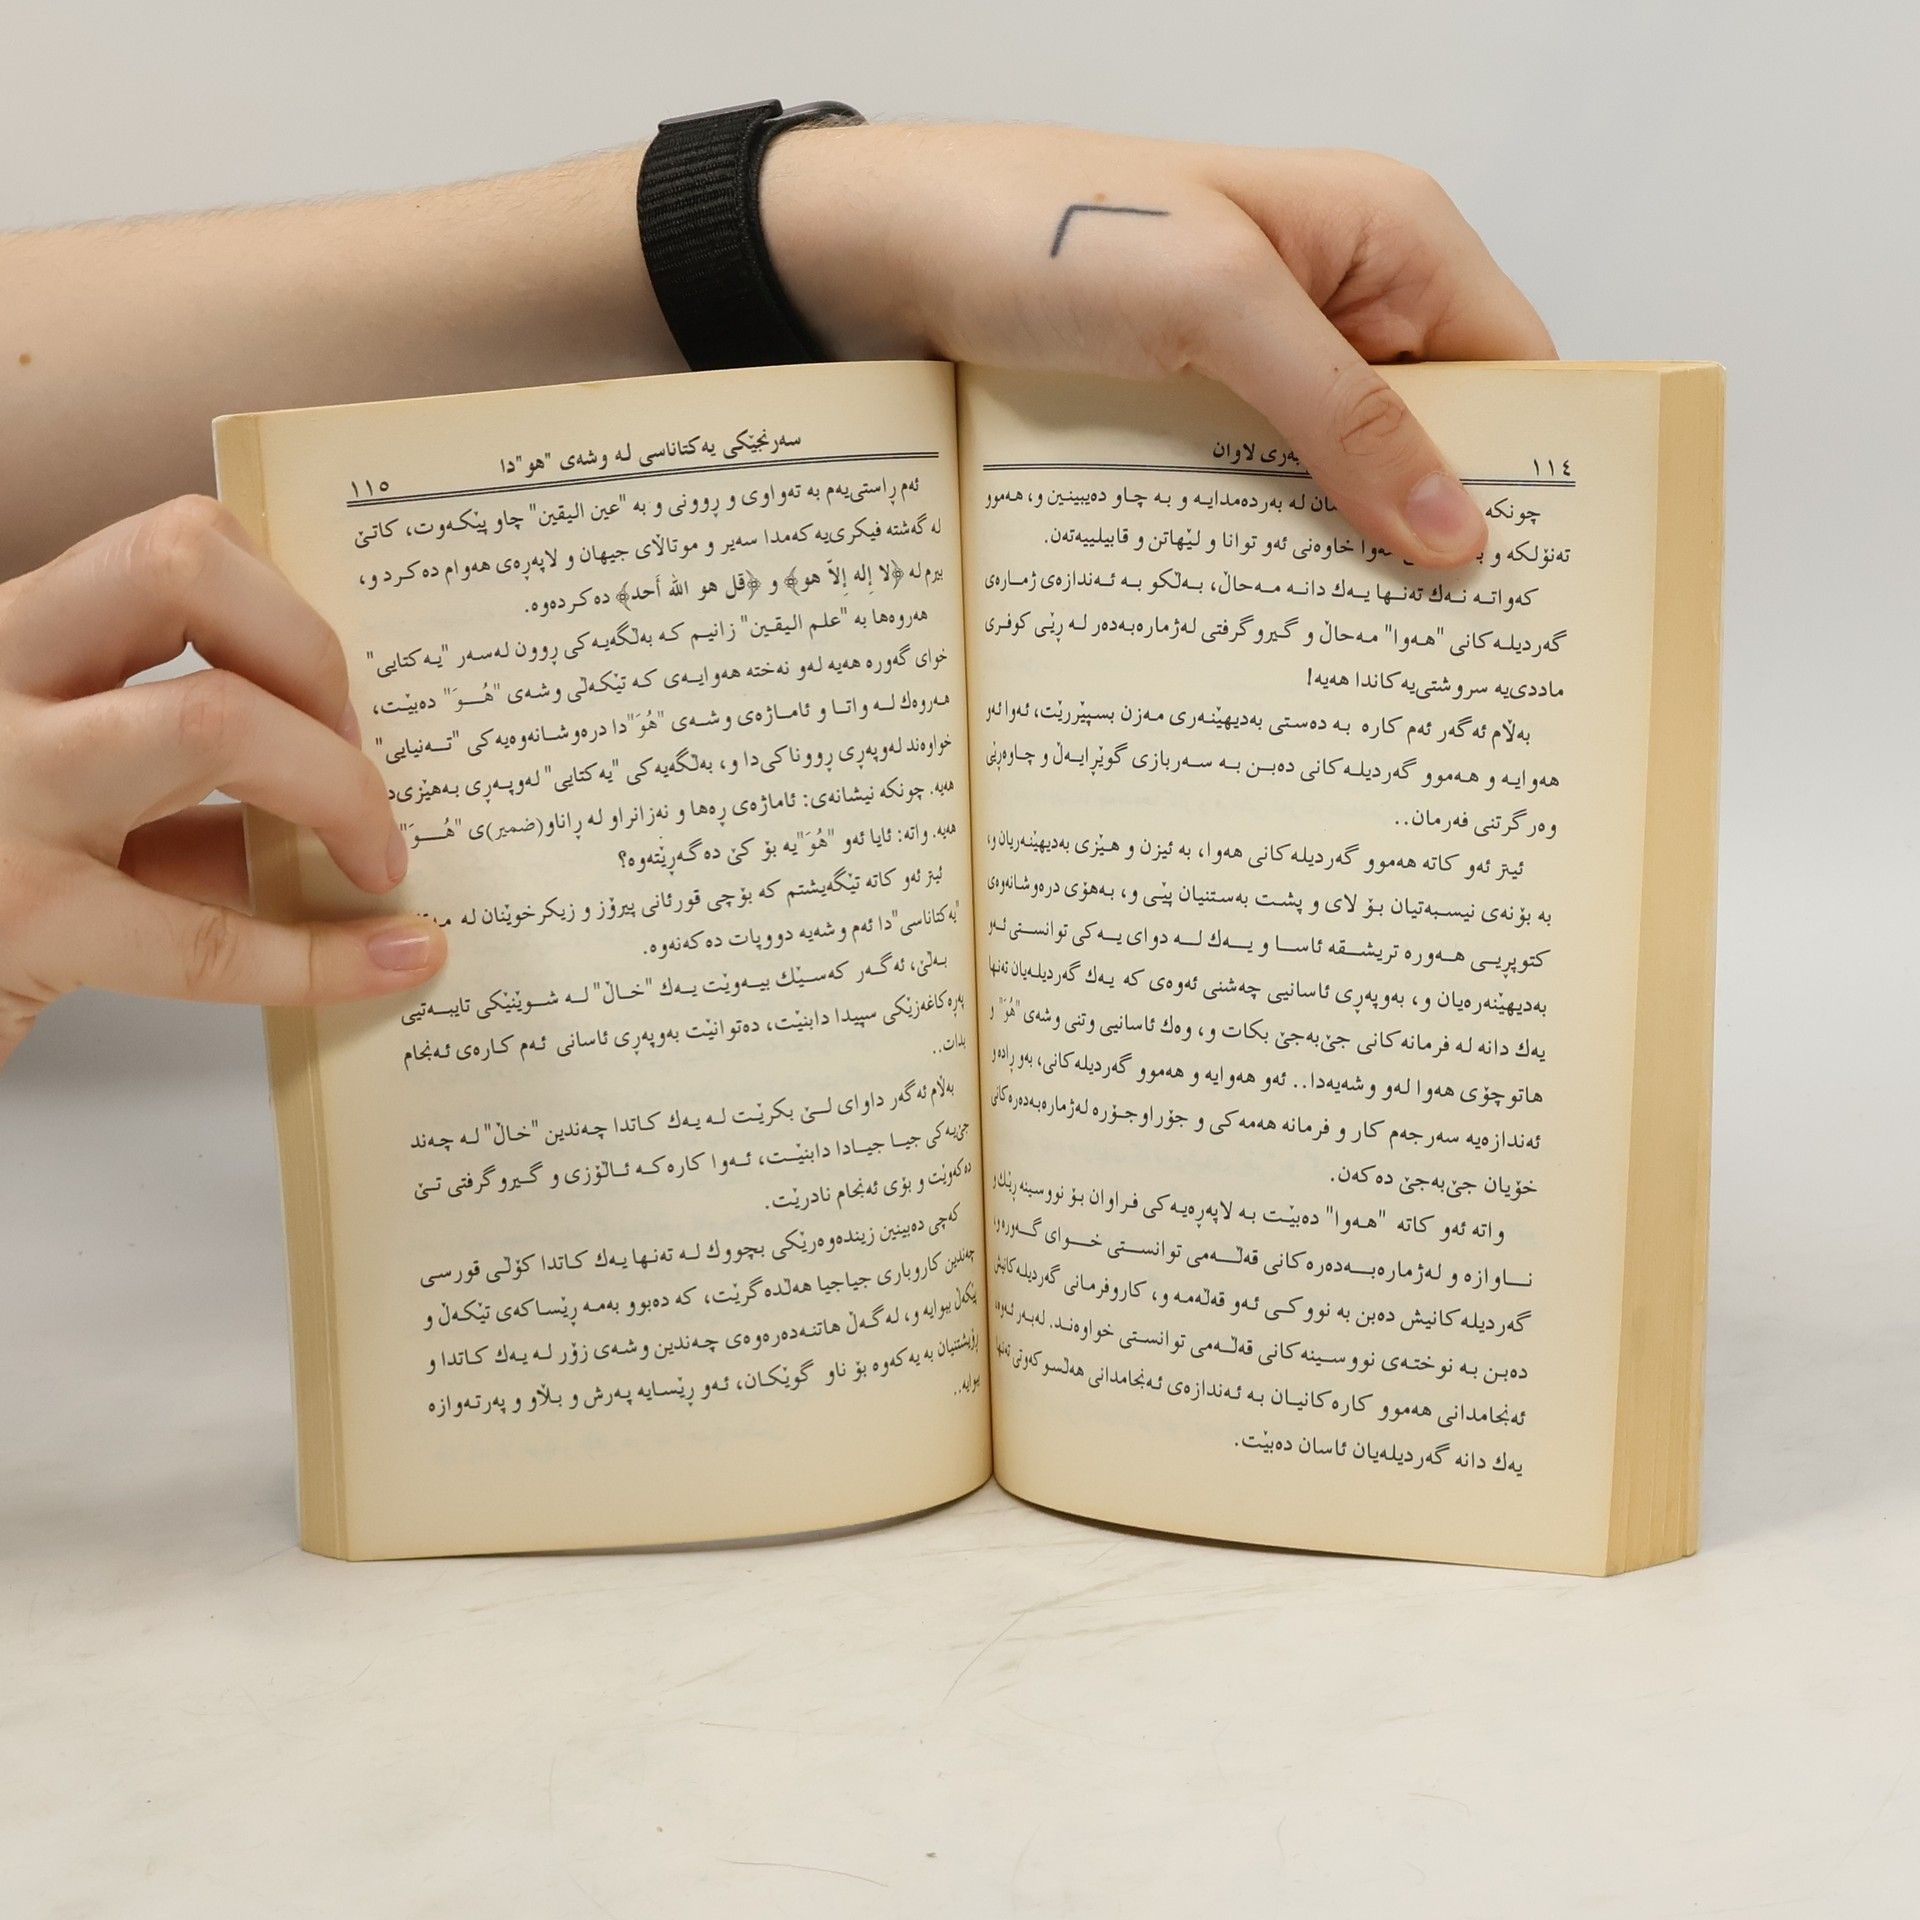 ١١٤
بەری لاوان
چونكە لە بەردەمدایە و بە چاو دەیبینین و، هەموو
تەنۆلكە و خاوەنی ئەو توانا و لێهاتن و قابیلییەتەن.
كەواتە نەك تەنها یەك دانە مەحاڵ، بەڵكو بە ئەندازەی ژمارەی
گەردیلەكانی "هەوا" مەحاڵ و گیروگرفتی لەژمارەبەدەر لە ڕێی كوفری
ماددی‌یە سروشتی‌یەكاندا هەیە!
بەڵام ئەگەر ئەم كارە بە دەستی بەدیهێنەری مەزن بسپێررێت، ئەوا ئەو
هەوایە و هەموو گەردیلەكانی دەبن بە سەربازی گوێڕایەڵ و چاوەڕێی
وەرگرتنی فەرمان..
ئیتر ئەو كاتە هەموو گەردیلەكانی هەوا، بە ئیزن و هێزی بەدیهێنەریان و،
بە بۆنەی نیسبەتیان بۆ لای و پشت بەستنیان پێی و، بەهۆی درەوشانەوەی
كتوپڕیی هەورە تریشقە ئاسا و یەك لە دوای یەكی توانستی ئەو
بەدیهێنەرەیان و، بەوپەڕی ئاسانیی چەشنی ئەوەی كە یەك گەردیلەیان تەنها
یەك دانە لە فرمانەكانی جێ‌بەجێ بكات و، وەك ئاسانیی وتنی وشەی "هُوَ" و
هاتوچۆی هەوا لەو وشەیەدا.. ئەو هەوایە و هەموو گەردیلەكانی، بەو ڕادە و
ئەندازەیە سەرجەم كار و فرمانە هەمەكی و جۆراوجۆرە لەژمارەبەدەرەكانی
خۆیان جێ‌بەجێ دەكەن.
واتە ئەو كاتە "هەوا" دەبێت بە لاپەڕەیەكی فراوان بۆ نووسینە ڕێك و
ناوازە و لەژمارەبەدەرەكانی قەڵەمی توانستی خوای گەورە و،
گەردیلەكانیش دەبن بە نووكی ئەو قەڵەمە و، كاروفرمانی گەردیلەكانیش
دەبن بە نوختەی نووسینەكانی قەڵەمی توانستی خواوەند. لەبەر ئەوە،
ئەنجامدانی هەموو كارەكانیان بە ئەندازەی ئەنجامدانی هەڵسوكەوتی تەنها
یەك دانە گەردیلەیان ئاسان دەبێت.
سەرنجێكی یەكتاناسی لە وشەی "هو"دا
١١٥
ئەم ڕاستی‌یەم بە تەواوی و ڕوونی و بە "عین الیقین" چاو پێكەوت، كاتێ
لە گەشتە فیكری‌یەكەمدا سەیر و موتاڵای جیهان و لاپەڕەی هەوام دەكرد و،
بیرم لە ﴿لا إله إلاّ هو﴾ و ﴿قل هو الله أَحد﴾ دەكردەوە.
هەروەها بە "علم الیقین" زانیم كە بەڵگەیەكی ڕوون لەسەر "یەكتایی"
خوای گەورە هەیە لەو نەختە هەوایەی كە تێكەڵی وشەی "هُوَ" دەبێت،
هەروەك لە واتا و ئاماژەی وشەی "هُوَ"دا درەوشانەوەیەكی "تەنیایی"
خواوەند لەوپەڕی ڕووناكی‌دا و، بەڵگەیەكی "یەكتایی" لەوپەڕی بەهێزی‌د
هەیە. چونكە نیشانەی: ئاماژەی ڕەها و نەزانراو لە ڕاناو(ضمیر)ی "هُوَ"
هەیە. واتە: ئایا ئەو "هُوَ"یە بۆ كێ دەگەڕێتەوە؟
ئیتر ئەو كاتە تێگەیشتم كە بۆچی قورئانی پیرۆز و زیكرخوێنان لە
"یەكتاناسی"دا ئەم وشەیە دووپات دەكەنەوە.
بەڵێ، ئەگەر كەسێك بیەوێت یەك "خاڵ" لە شوێنێكی تایبەتیی
پەڕە كاغەزێكی سپیدا دابنێت، دەتوانێت بەوپەڕی ئاسانی ئەم كارەی ئەنجام
بدات..
بەڵام ئەگەر داوای لێ بكرێت لە یەك كاتدا چەندین "خاڵ" لە چەند
جێ‌یەكی جیا جیادا دابنێت، ئەوا كارەكە ئاڵۆزی و گیروگرفتی تێ
دەكەوێت و بۆی ئەنجام نادرێت.
كەچی دەبینین زیندەوەرێكی بچووك لە تەنها یەك كاتدا كۆڵی قورسی
چەندین كاروباری جیاجیا هەڵدەگرێت، كە دەبوو بەمە ڕێساكەی تێكەڵ و
پێكەڵ ببوایە و، لەگەڵ هاتنەدەرەوەی چەندین وشەی زۆر لە یەك كاتدا و
ڕۆیشتنیان بە یەكەوە بۆ ناو گوێكان، ئەو ڕێسایە پەرش و بڵاو و پەرتەوازە
ببوایە..